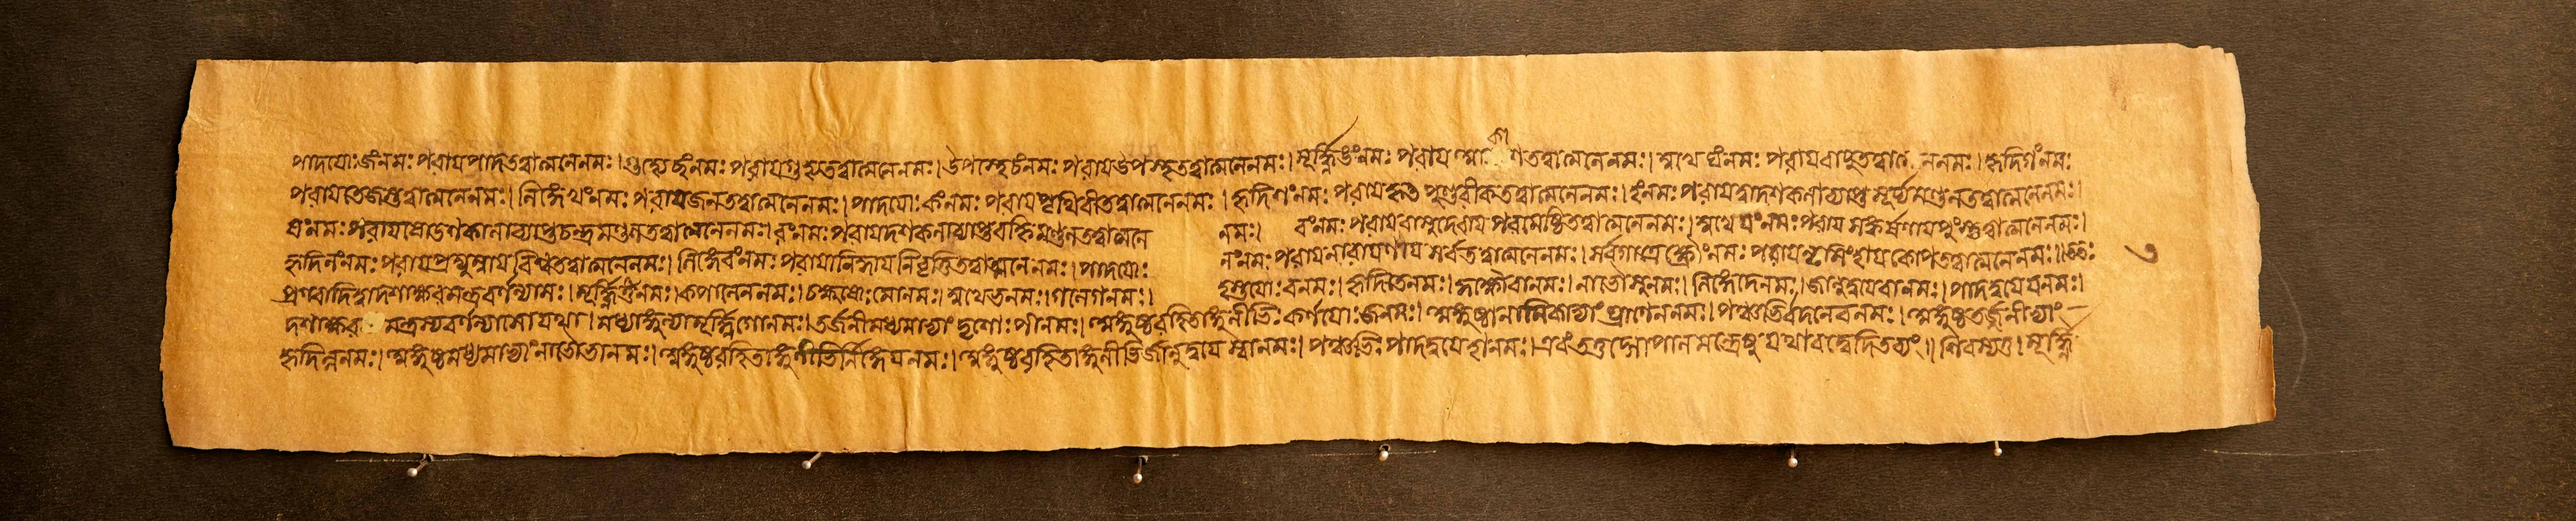 পাদয়োঃ জং নমঃ পরায় পাদতত্ত্বাত্মনে নমঃ। গুহ্যে ছং নমঃ পরায় গুহ্যতত্ত্বাত্মনে নমঃ। উপস্থে চং নমঃ পরায় উপস্থতত্ত্বাত্মনে নমঃ। মূর্দ্ধ্নি ঙং নমঃ পরায় আকাশতত্ত্বাত্মনে নমঃ। মুখে ঘং নমঃ পরায় বায়ুতত্ত্বাত্মনে নমঃ। হৃদি গং নমঃ
পরায় তেজস্তত্ত্বাত্মনে নমঃ। লিঙ্গে খং নমঃ পরায় জলতত্ত্বাত্মনে নমঃ। পাদয়োঃ কং নমঃ পরায় পৃথিবীতত্ত্বাত্মনে নমঃ। হৃদি শং নমঃ পরায় হৃৎপুণ্ডরীকতত্ত্বাত্মনে নমঃ। হং নমঃ পরায় দ্বাদশকলাব্যাপ্ত সূর্য্যমণ্ডলতত্ত্বাত্মনে নমঃ।
নমঃ পরায় ষোডশকলাব্যাপ্তচন্দ্রমণ্ডলতত্ত্বাত্মনে নমঃ। রং নমঃ পরায় দশকলাব্যাপ্তবহ্নিমণ্ডলতত্ত্বাত্মনে নমঃ। নমঃ পরায় বাসুদেবায় পরমেষ্ঠিতত্ত্বাত্মনে নমঃ। মুখে যং নমঃ পরায় সঙ্কর্ষণায় পুংস্তত্ত্বাত্মনে নমঃ।
হৃদি লং নমঃ পরায় প্রদ্যুম্নায় বিশ্বতত্ত্বাত্মনে নমঃ। লিঙ্গে বং নমঃ পরায়ানিরুদ্ধায় নিবৃত্তিতত্ত্বাত্মনে নমঃ। পাদয়োঃ লং নমঃ পরায় নারায়ণায় সর্বতত্ত্বাত্মনে নমঃ। সর্বগাত্রে ক্ষ্রৌং নমঃ পরায় নৃসিংহায় কোপতত্ত্বাত্মনে নমঃ॥
প্রণবাদিদ্বাদশাক্ষরমন্ত্রবর্ণন্যাসঃ। মূর্দ্ধ্নি নমঃ। কপালে ন নমঃ। চক্ষুষোঃ মো নমঃ। মুখে ভ নমঃ। গলে গ নমঃ। হস্তয়োঃ ব নমঃ। হৃদি তে নমঃ। কুক্ষৌ বা নমঃ। নাভৌ সু নমঃ। লিঙ্গে দে নমঃ। জানুদ্বয়ে বা নমঃ। পাদদ্বয়ে য নমঃ।
দশাক্ষর মন্ত্রস্য বর্ণন্যাসো যথা। মধ্যাঙ্গুল্যা মূর্দ্ধ্নি গো নমঃ। তর্জনীমধ্যমাভ্যাং দৃশোঃ পী নমঃ। অঙ্গুষ্ঠরহিতাঙ্গুলীভিঃ কর্ণয়োঃ জ নমঃ। অঙ্গুষ্ঠানামিকাভ্যাং ঘ্রাণে ন নমঃ। পঞ্চভির্বদনে ব নমঃ। অঙ্গুষ্ঠতর্জনীভ্যাং
হৃদি ল্ল নমঃ। অঙ্গুষ্ঠমধ্যমাভ্যাং নাভৌ ভা নমঃ। অঙ্গুষ্ঠরহিতাঙ্গুলীভির্লিঙ্গে য নমঃ। অঙ্গুষ্ঠরহিতাঙ্গুলীভির্জানুদ্বয়ে স্বা নমঃ। পঞ্চভিঃ পাদদ্বয়ে হা নমঃ। এবং তত্তদ্গোপালমন্ত্রেষু যথাবদ্বেদিতব্যং॥ শিবস্য তু। মূর্দ্ধ্নি
৩